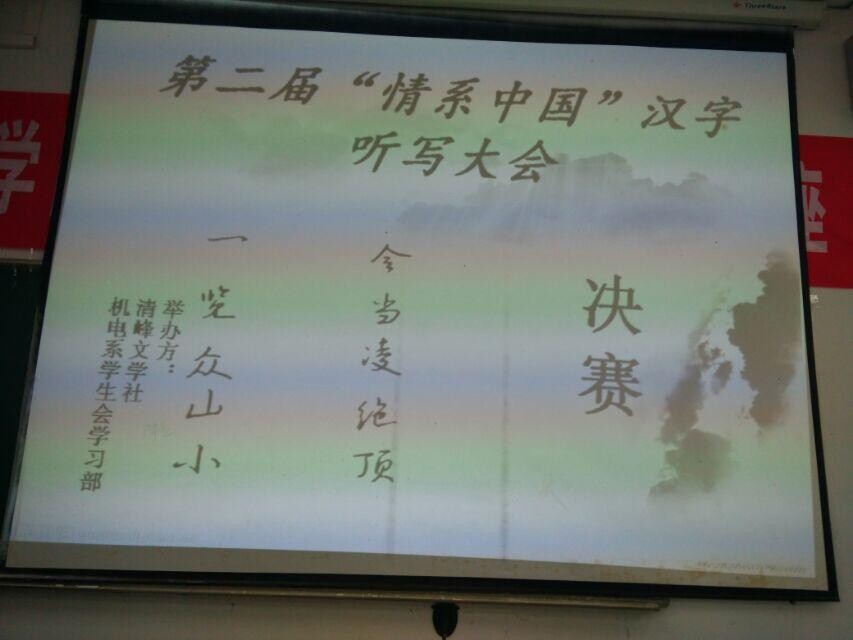 ThreeStars
第二届“情系中国”汉字
听写大会
决赛
会当凌绝顶
一览众山小
举办方：
清峰文学社
机电系学生会学习部
学
座